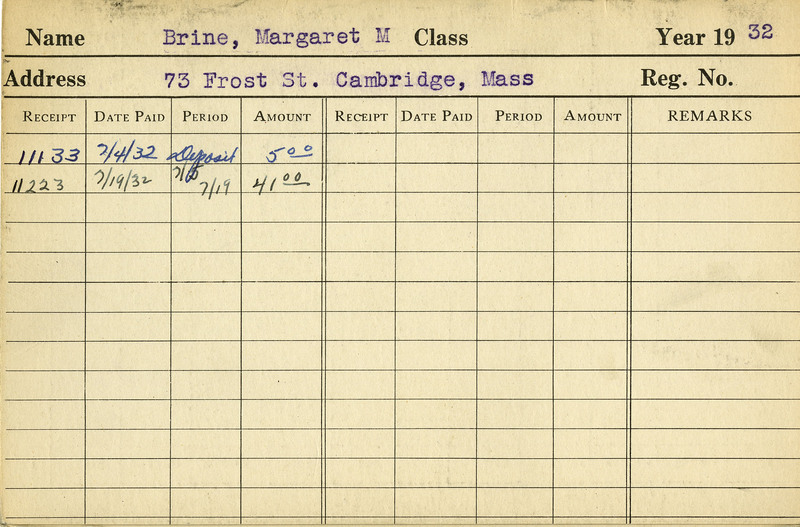 Name Brine, Margaret M Class Year 19 32
Address 73 Frost St. Cambridge, Mass Reg. No.
RECEIPT DATE PAID PERIOD AMOUNT RECEIPT DATE PAID PERIOD AMOUNT REMARKS
11133 7/4/32 Deposit 5 00
11223 7/19/32 7/19 41 00